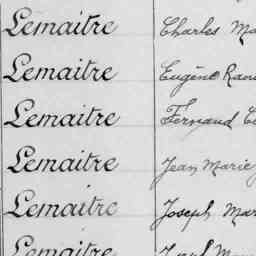 Lemaitre Charles Ma
Lemaitre Eugène Raou
Lemaitre Fernand
Lemaitre Jean Marie
Lemaitre Joseph Mar
Lemaitre